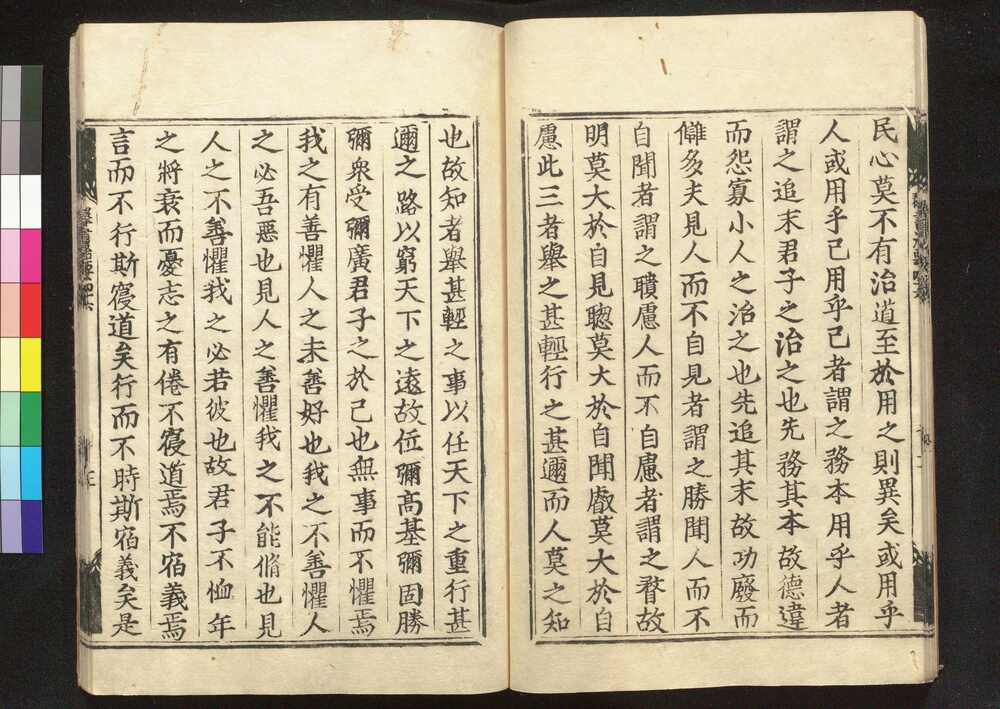 民心莫不有治道至於用之則異矣或用乎
人或用乎己用乎己者謂之務本用乎人者
謂之追末君子之治之也先務其本故德違
而怨寡小人之治之也先追其末故功廢而
讎多夫見人而不自見者謂之矇聞人而不
自聞者謂之聵慮人而不自慮者謂之瞀故
明莫大於自見聦莫大於自聞睿莫大於自
慮此三者舉之甚輕行之甚邇而人莫之知
也故知者舉甚輕之事以任天下之重行甚
邇之路以窮天下之遠故位彌高基彌固勝
彌衆受彌廣君子之於己也無事而不懼焉
我之有善懼人之未善好也我之不善懼人
之必吾惡也見人之善懼我之不能脩也見
人之不善懼我之必若彼也故君子不恤年
之將衰而憂志之有倦不寑道焉不宿義焉
言而不行斯寑道矣行而不時斯宿義矣是